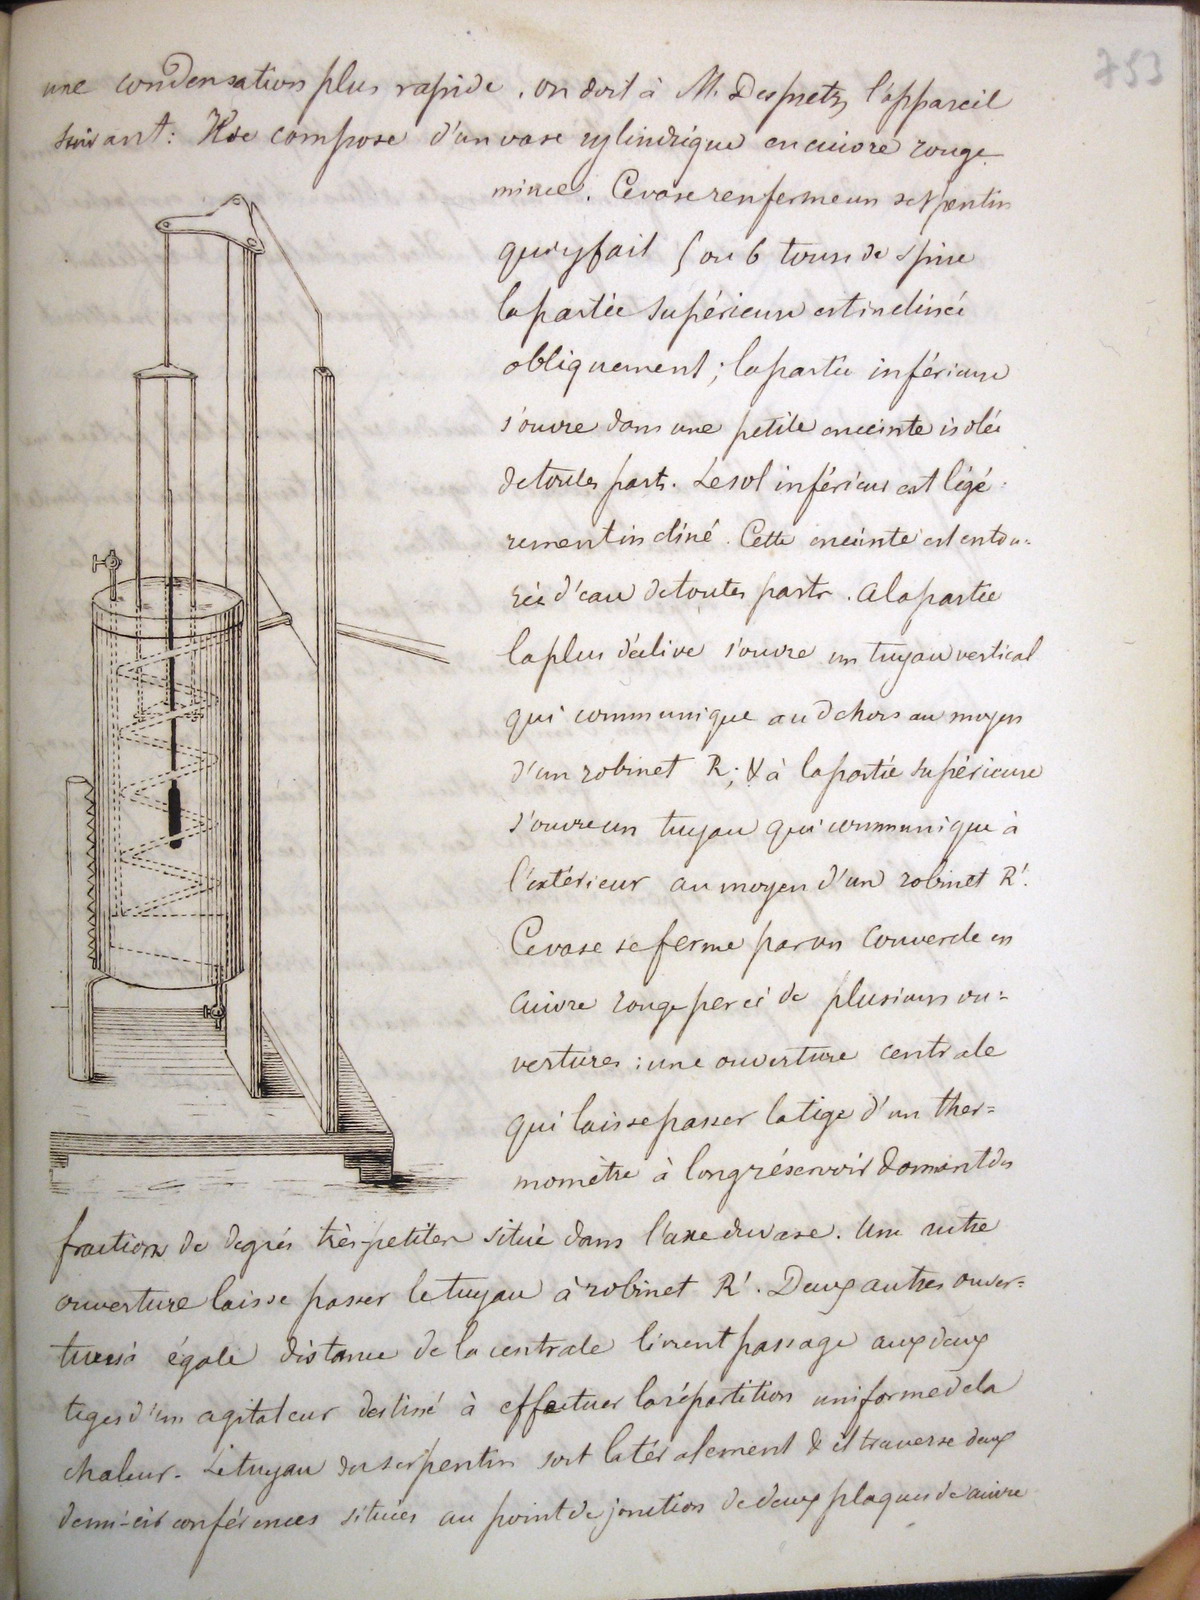 753
une condensation plus rapide. on doit à M. Despretz l'appareil
suivant: Il se compose d'un vase cylindrique en cuivre rouge
mince. Ce vase renferme un serpentin
qui y fait 5 ou 6 tours de spire
la partie supérieure est inclinée
obliquement; la partie inférieure
s'ouvre dans une petite enceinte isolée
de toutes parts. Le sol inférieur est légé-
rement incliné. Cette enceinte est entou=
rée d'eau de toutes parts. A la partie
la plus déclive s'ouvre un tuyau vertical
qui communique au dehors au moyen
d'un robinet R; & à la partie supérieure
s'ouvre un tuyau qui communique à
l'extérieur au moyen d'un robinet R'.
Ce vase se ferme par un couvercle en
cuivre rouge percé de plusieurs ou=
vertures: une ouverture centrale
qui laisse passer la tige d'un ther=
momètre à long réservoir donnant des
fractions de degrés très petites situé dans l'axe du vase. Une autre
ouverture laisse passer le tuyau à robinet R'. Deux autres ouver=
tures à égale distance de la centrale livrent passage aux deux
tiges d'un agitateur destiné à effectuer la répartition uniforme de la
chaleur. Le tuyau du serpentin sort latéralement & il traverse deux
demi-circonférences situées au point de jonction de deux plaques de cuivre